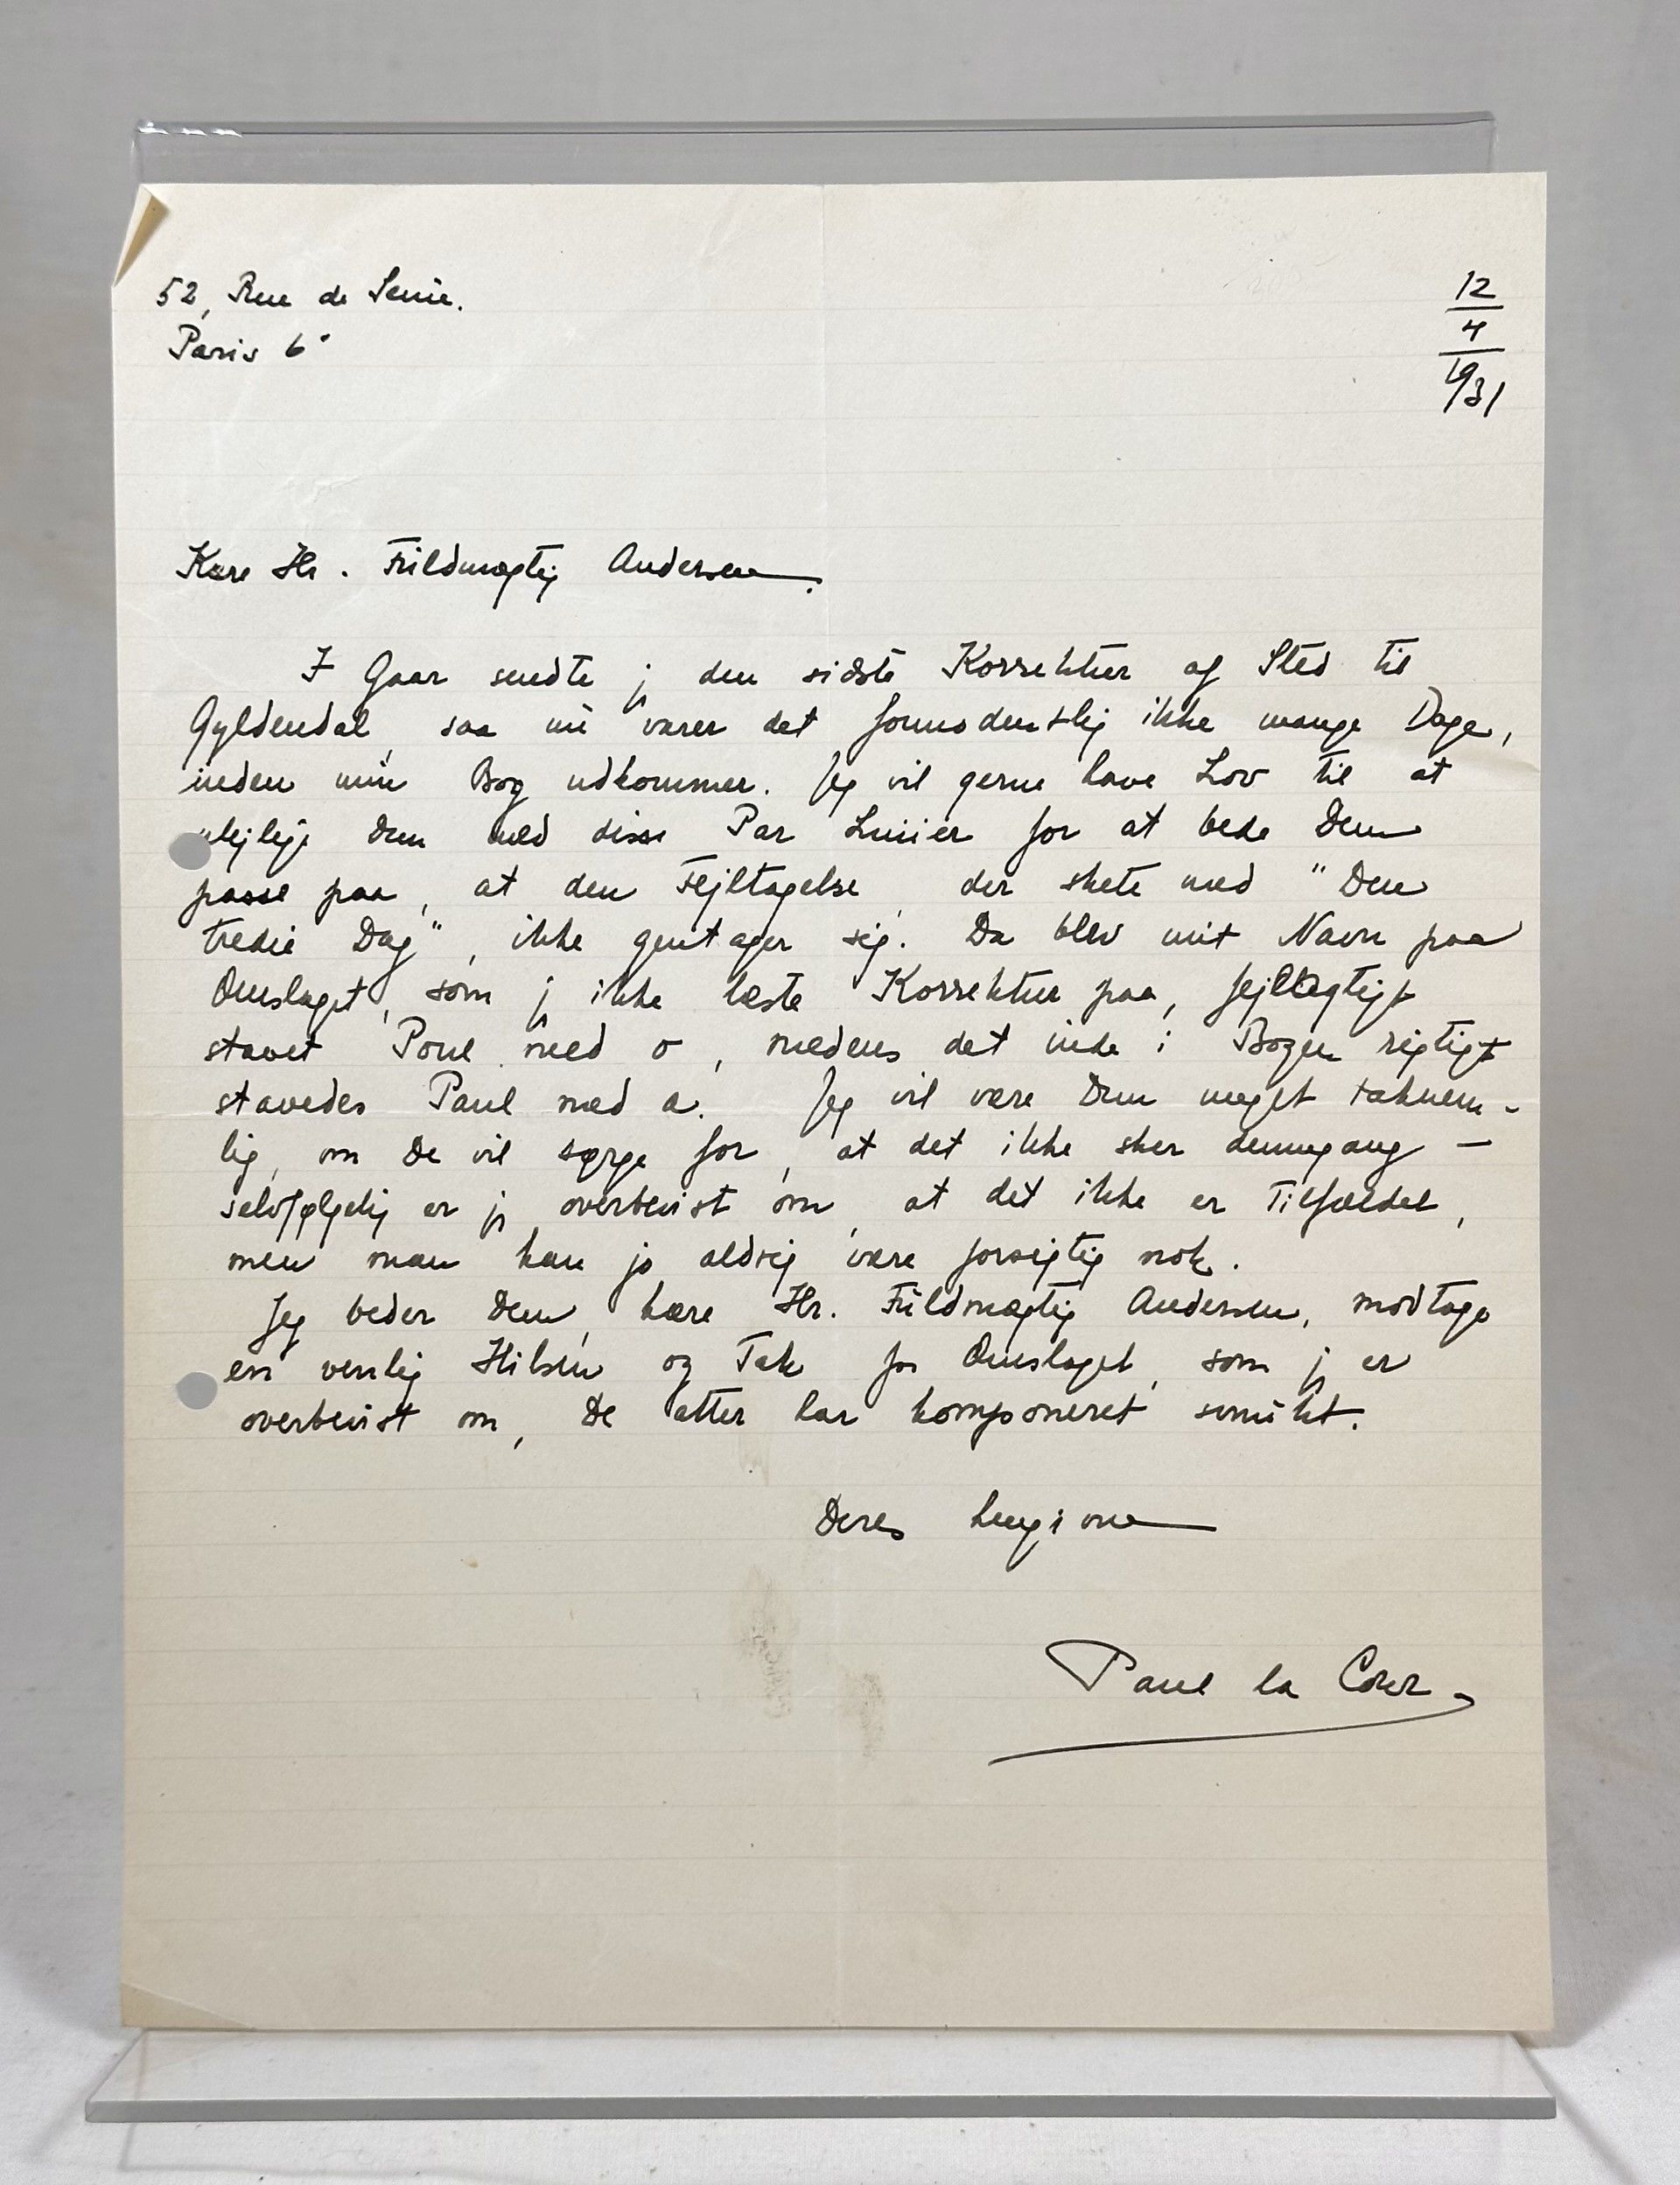 52, Rue de Seine.
Paris 6e
12
4
1931
Kære Hr. Fuldmægtig Andersen.
I Gaar sendte jeg den sidste Korrektur af Sted til
Gyldendal, saa nu varer det formodentlig ikke mange Dage,
inden min Bog udkommer. Jeg vil gerne have Lov til at
ulejlige Dem med disse Par Linier for at bede Dem
passe paa, at den Fejltagelse, der skete med "Den
tredie Dag", ikke gentager sig. Da blev mit Navn paa
Omslaget, som jeg ikke læste Korrektur paa, fejlagtigt
stavet Poul med o, medens det inde i Bogen rigtigt
stavedes Paul med a. Jeg vil være Dem meget taknem-
lig, om De vil sørge for, at det ikke sker dennegang —
selvfølgelig er jeg overbevist om, at det ikke er Tilfældet,
men man kan jo aldrig være forsigtig nok.
Jeg beder Dem, kære Hr. Fuldmægtig Andersen, modtage
en venlig Hilsen og Tak for Omslaget, som jeg er
overbevist om, De atter har komponeret smukt.
Deres hengivne
Paul la Cour